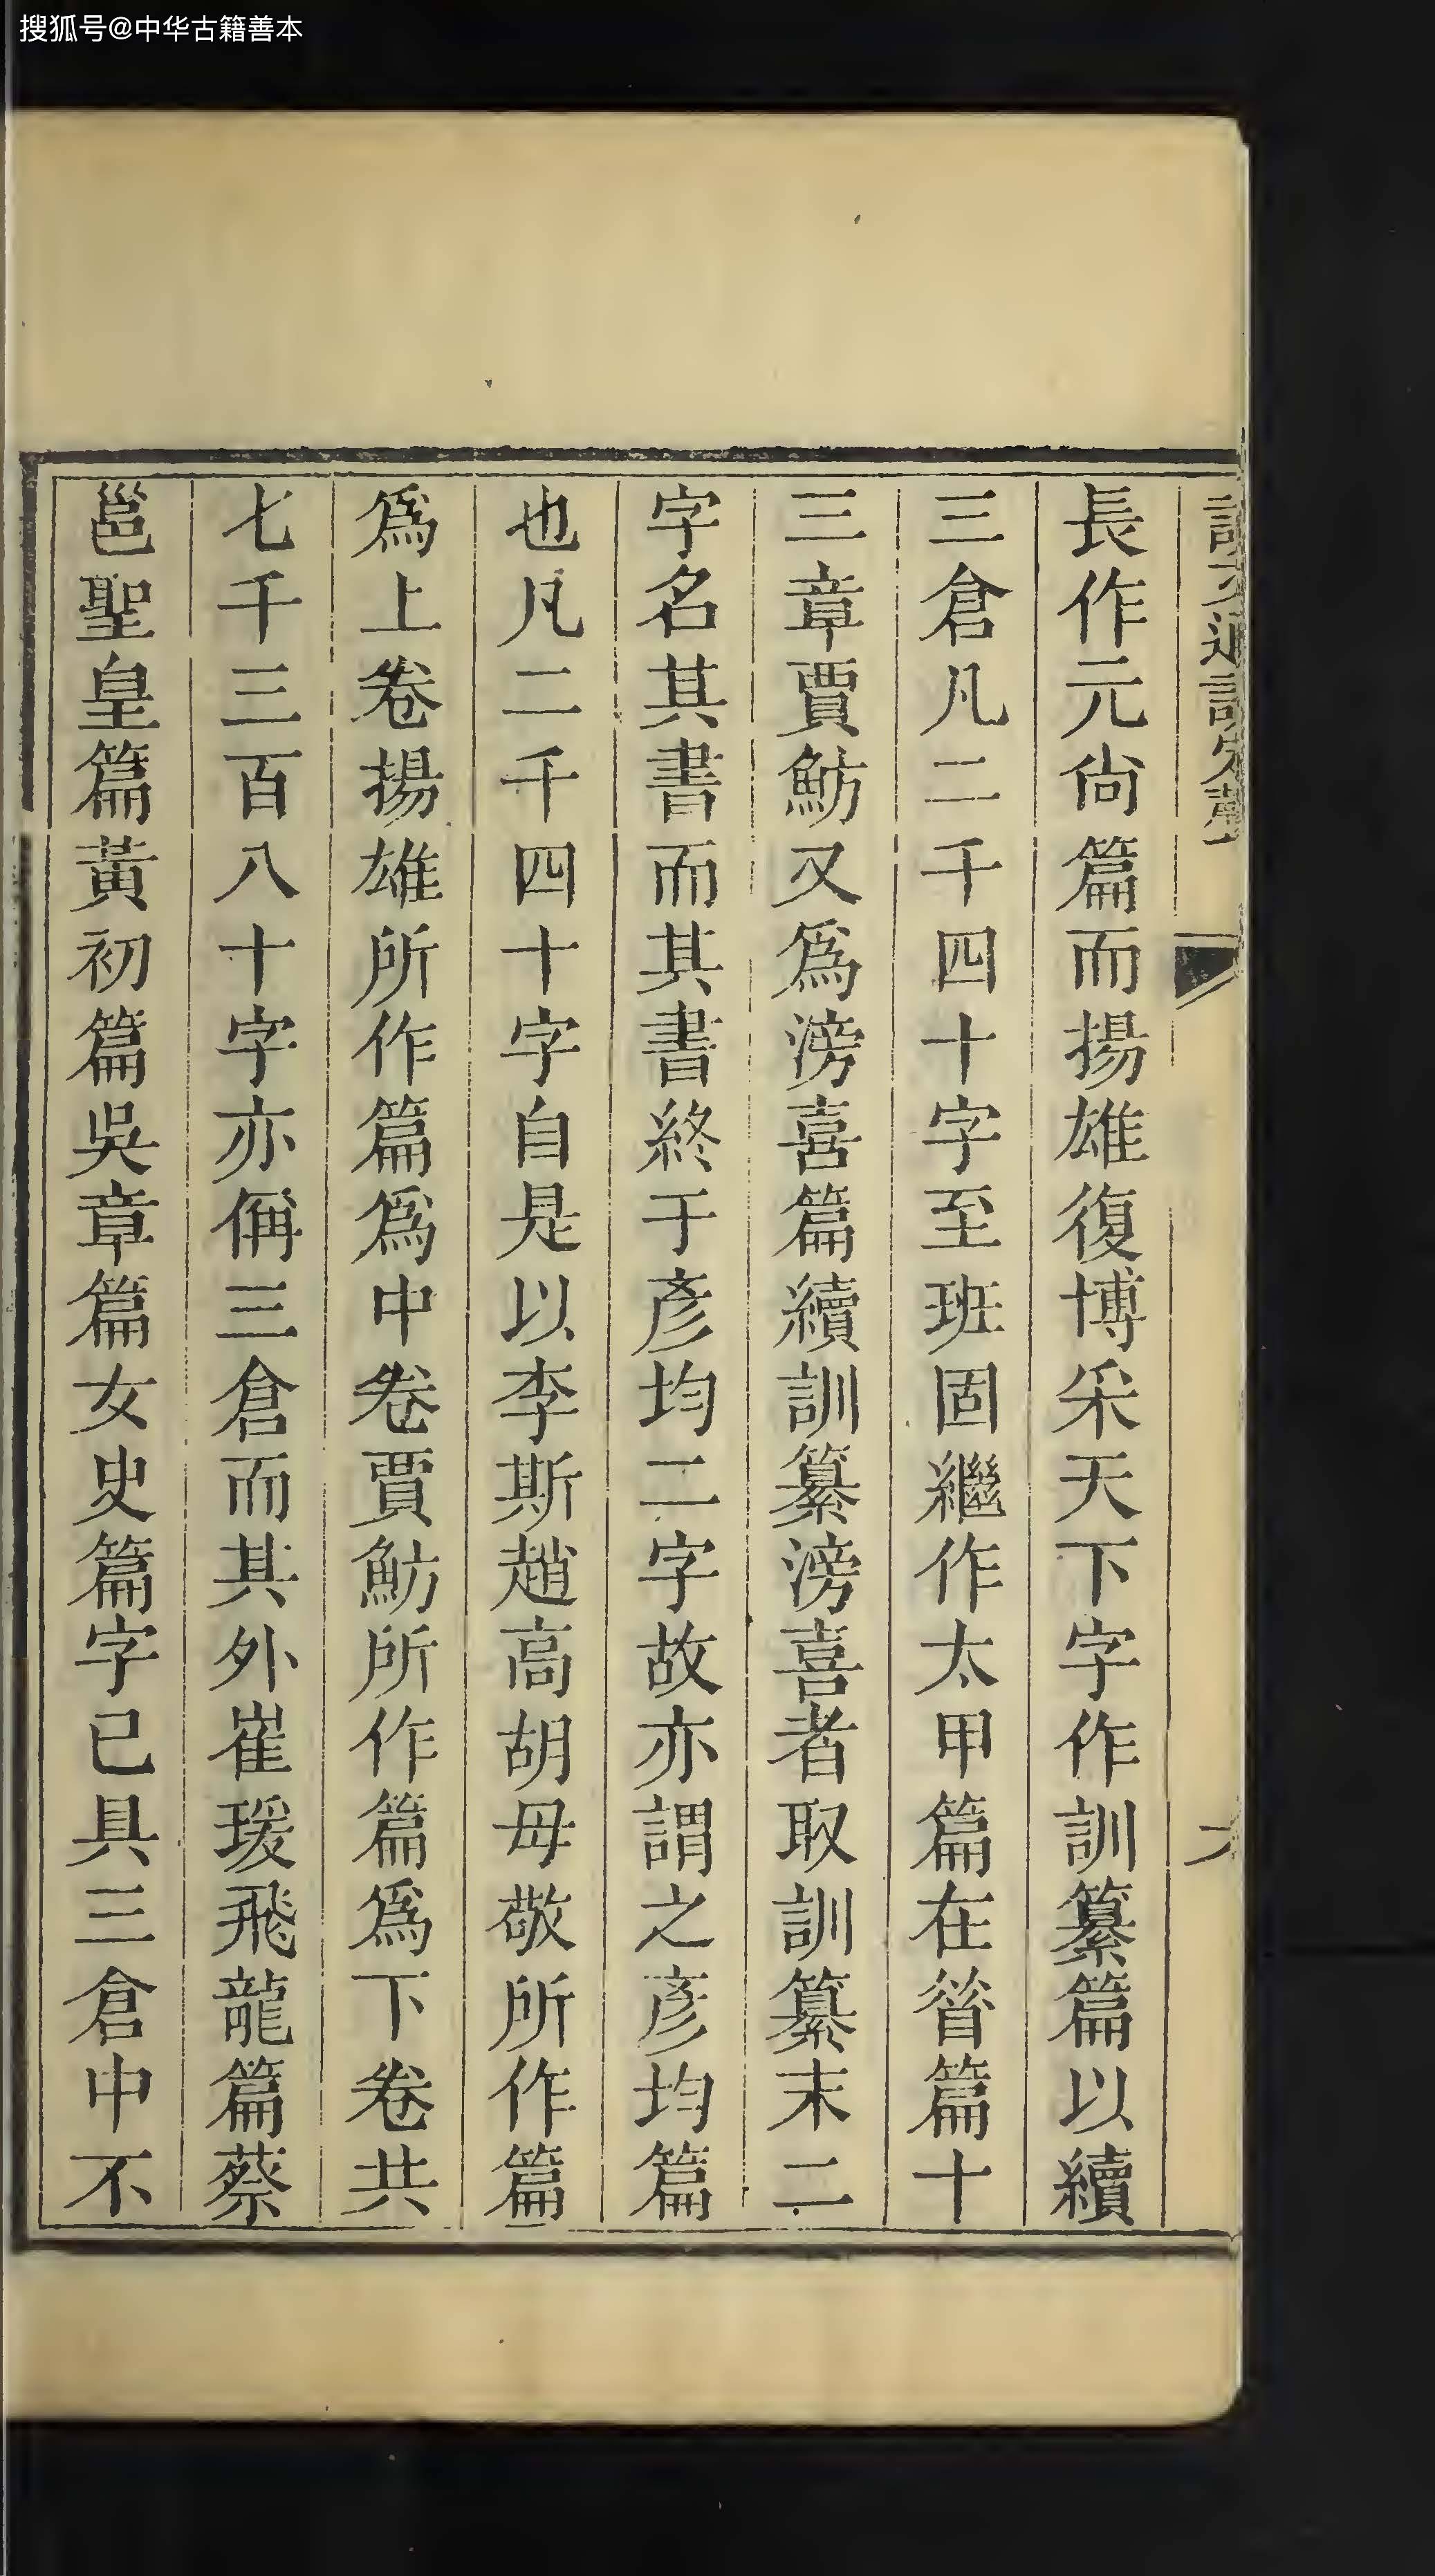 搜狐号@中华古籍善本
長作元尙篇而揚雄復博采天下字作訓纂篇以續
三倉凡二千四十字至班固繼作太甲篇在昝篇十
三章賈魴又爲滂喜篇續訓纂滂喜者取訓纂末二
字名其書而其書終于彥均二字故亦謂之彥均篇
也凡二千四十字自是以李斯趙高胡毋敬所作篇
爲上卷揚雄所作篇爲中卷賈魴所作篇爲下卷共
七千三百八十字亦偁三倉而其外崔瑗飛龍篇蔡
邕聖皇篇黃初篇吳章篇女史篇字已具三倉中不